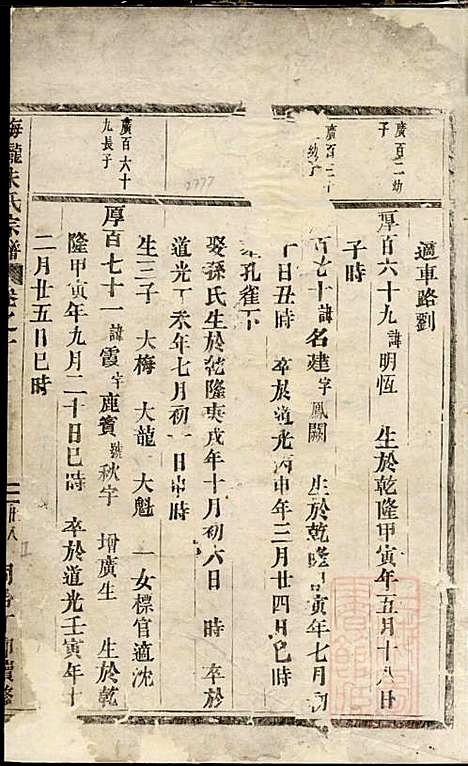 適車路劉
廣百二幼
子
厚百六十九諱明恆 生於乾隆甲寅年五月十八日
子時
幼子
百七十諱名建字鳳闕 生於乾隆甲寅年七月初
十日丑時 卒於道光丙申年三月廿四日巳時
孔雀下
娶孫氏生於乾隆庚戌年十月初六日 時 卒於
道光丁未年七月初一日申時
生三子 大梅 大龍 大魁 一女標官適沈
廣百六十
九長子
厚百七十一諱霞字鹿賓號秋宇 增廣生 生於乾
隆甲寅年九月二十日巳時 卒於道光壬寅年十
二月廿五日巳時
梅朧朱氏宗譜 卷之十
2777